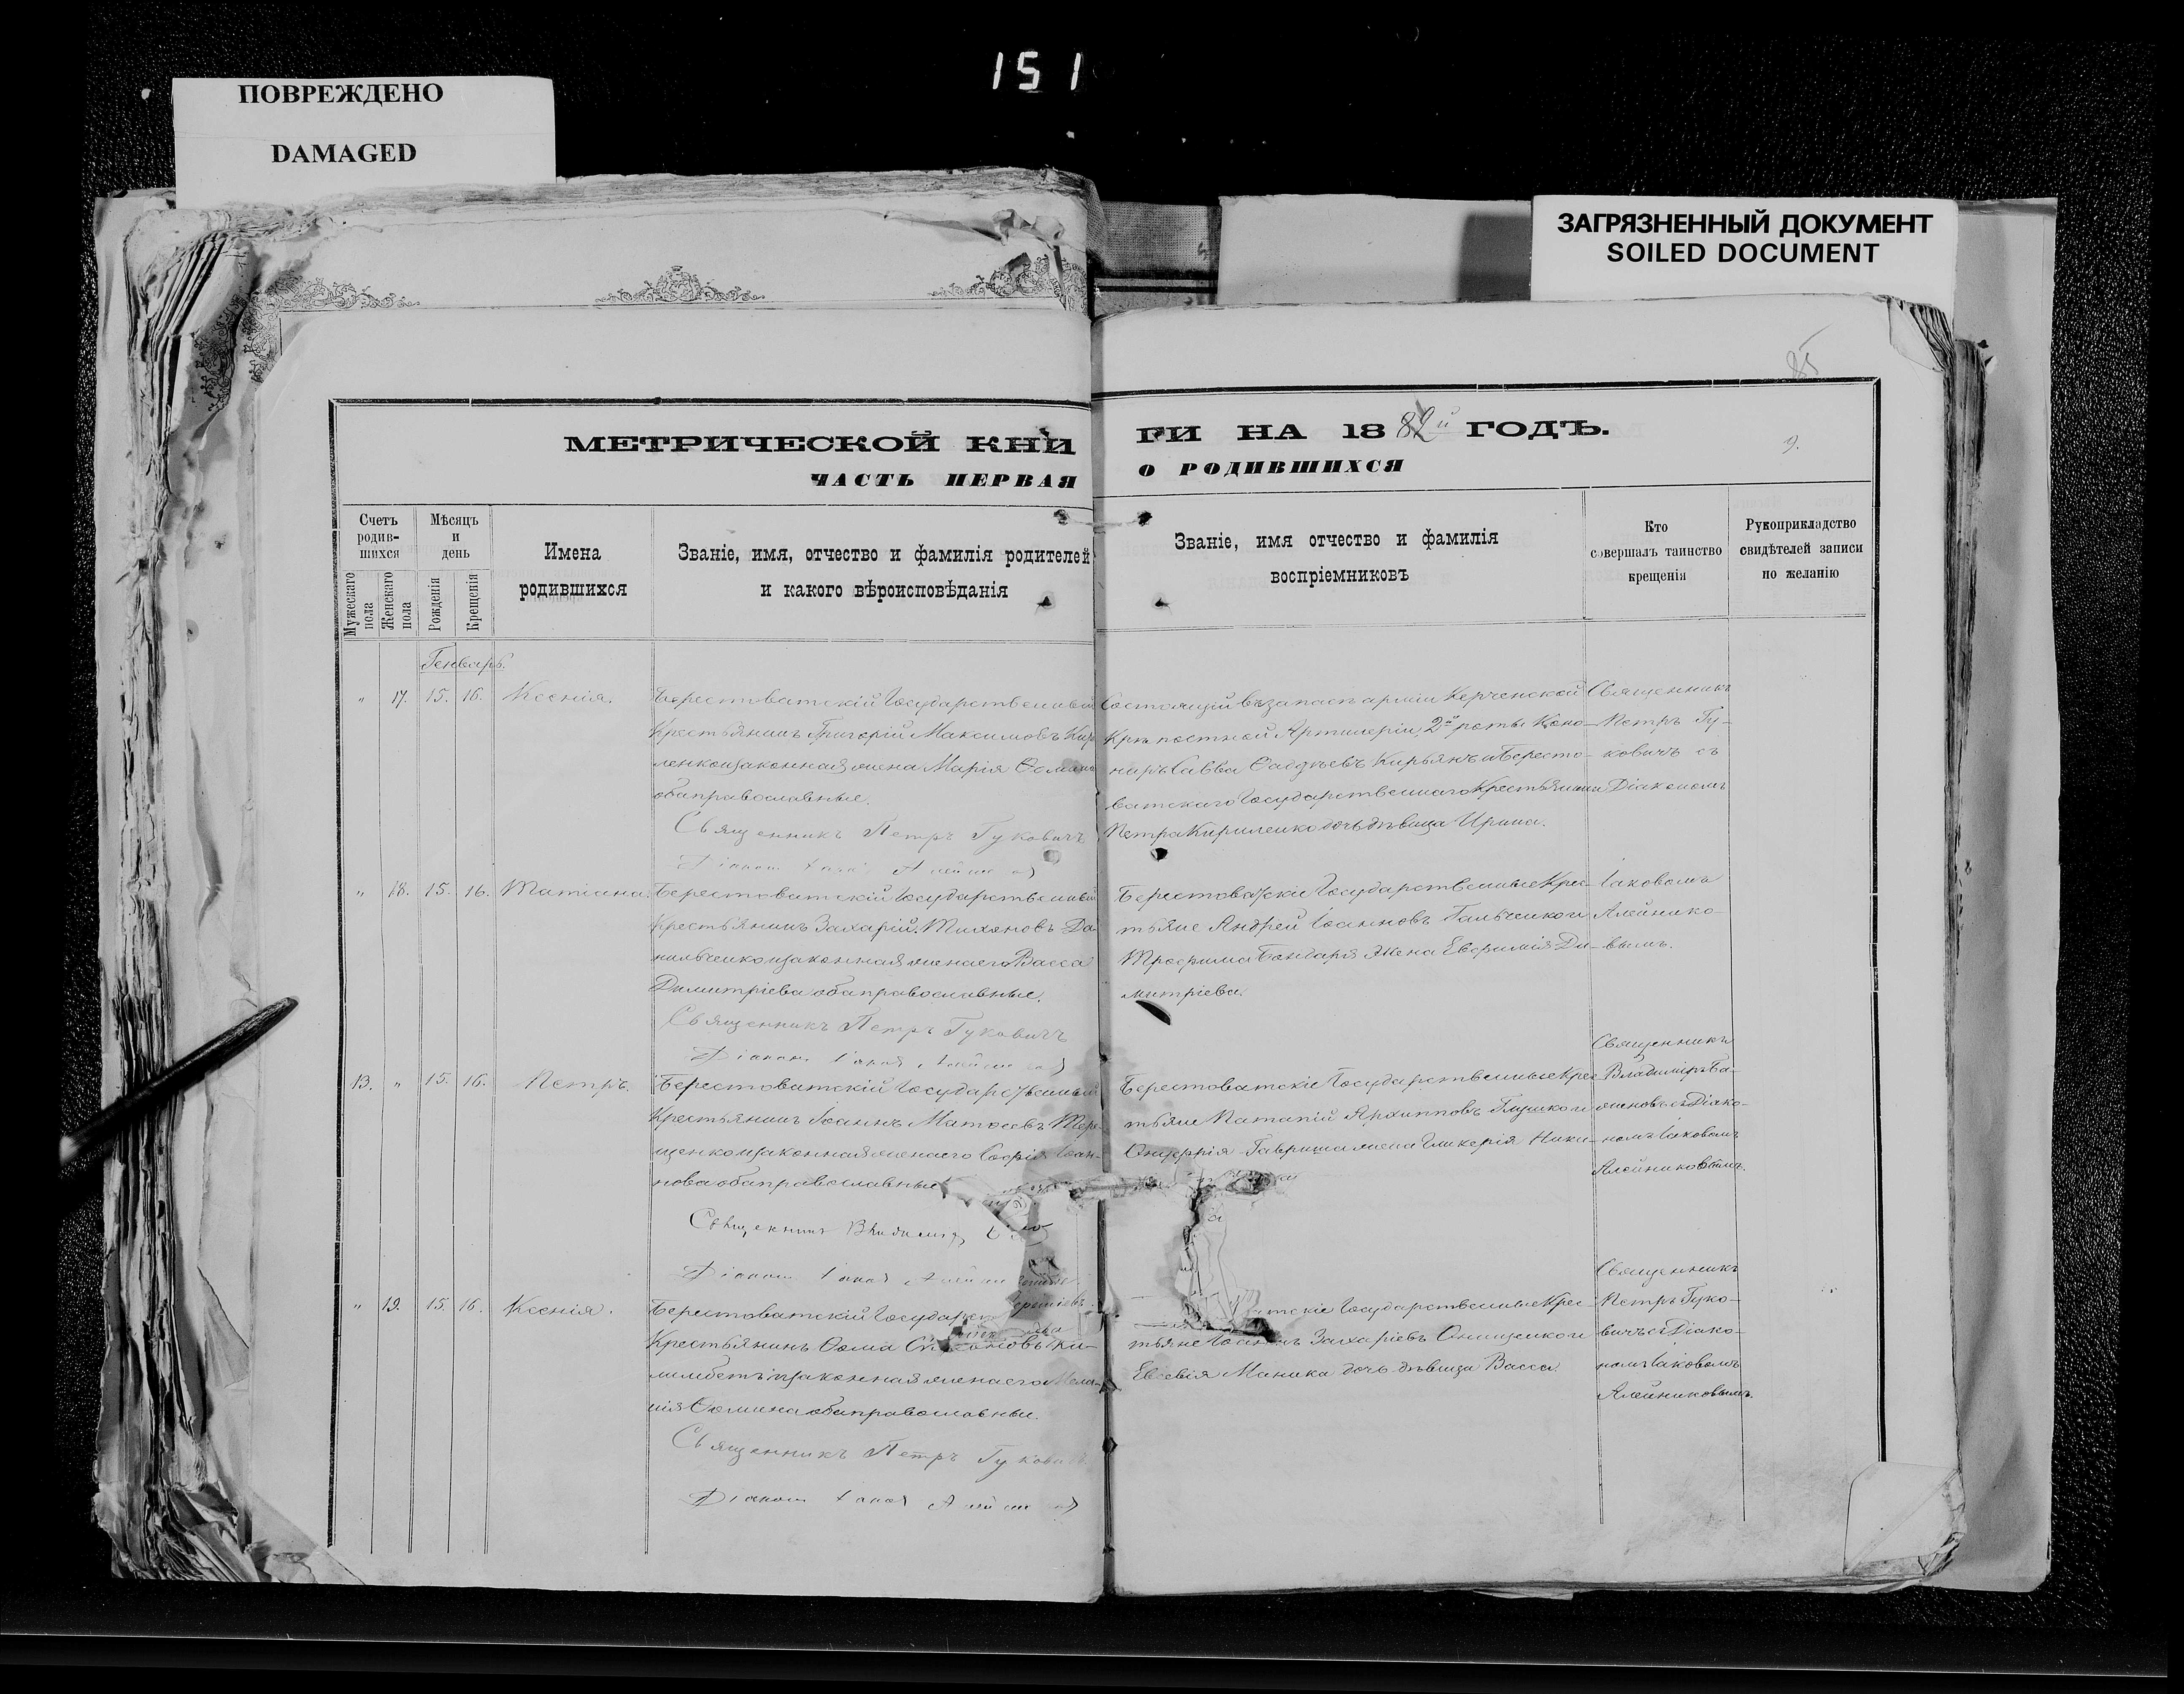 151
ПОВРЕЖДЕНО
DAMAGED
ЗАГРЯЗНЕННЫЙ ДОКУМЕНТ
SOILED DOCUMENT
85
МЕТРИЧЕСКОЙ КНИ
ГИ НА 1882й ГОДЪ.
9.
ЧАСТЬ ПЕРВАЯ
О РОДИВШИХСЯ
Счетъ родив-шихся
Мужескаго пола
Женскаго пола
Мѣсяцъ и день
Рожденія
Крещенія
Имена родившихся
Званіе, имя, отчество и фамилія родителей
и какого вѣроисповѣданія
Званіе, имя отчество и фамилія
воспріемниковъ
Кто
совершалъ таинство
крещенія
Рукоприкладство
свидѣтелей записи
по желанію
Генварь.
" 17. 15. 16. Ксенія.
Берестоватскій Государственный
Крестьянинъ Григорій Максимовъ Кири
ленко и законная жена Марія
оба православные.
Священникъ Петръ Гуковичъ
Состоящій въ запасѣ арміи Керченской
Крѣпостной Артилеріи, 2й роты Коно-
ниръ Савва Кирьянъ и Бересто-
ватскаго Государственнаго Крестьянина
Петра Кириленко дочь дѣвица Ирина.
Священникъ
Петръ Гу-
ковичъ съ
Діакономъ
Іаковомъ
Алейнико-
вымъ.
" 18. 15. 16. Татіана.
Берестоватскій Государственный
Крестьянинъ Захарій Тихоновъ Да-
нильченко и законная жена его Васса
Димитріева оба православные.
Священникъ Петръ Гуковичъ
Берестоватскіе Государственные Крес-
тьяне Андрей Іоанновъ Гальченко и
Трофима Бондаря жена Евфимія Ди-
митріева.
13. " 15. 16. Петръ.
Берестоватскій Государственный
Крестьянинъ Іоаннъ Матѳеевъ Тере
щенко и законная жена его Софія Іоан-
нова оба православные
Священникъ
Берестоватскіе Государственные Крес
тьяне Патапій Архипповъ Глушко и
Онуфрія Гавриша жена Гликерія Ники-
Священникъ
Владиміръ Ба-
жановъ съ Діако-
номъ Іаковомъ
Алейниковымъ.
" 19. 15. 16. Ксенія.
Берестоватскій
Крестьянинъ Ѳома
и законная жена его Мела-
нія Ѳомина оба православные.
Священникъ Петръ Гукови
Діаконъ
Государственные Крес-
тьяне Захаріевъ Онищенко и
Евсевія Маника дочь дѣвица Васса.
Священникъ
Петръ Гуко-
вичъ съ Діако-
номъ Іаковомъ
Алейниковымъ.